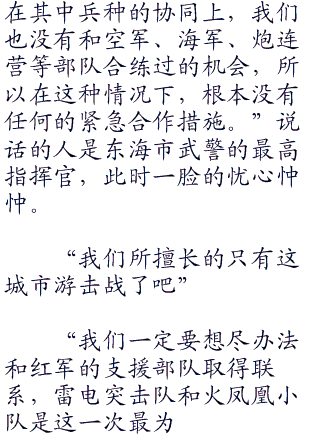 在其中兵种的协同上，我们
也没有和空军、海军、炮连
营等部队合练过的机会，所
以在这种情况下，根本没有
任何的紧急合作措施。”说
话的人是东海市武警的最高
指挥官，此时一脸的忧心忡
忡。
“我们所擅长的只有这
城市游击战了吧”
“我们一定要想尽办法
和红军的支援部队取得联
系，雷电突击队和火凤凰小
队是这一次最为